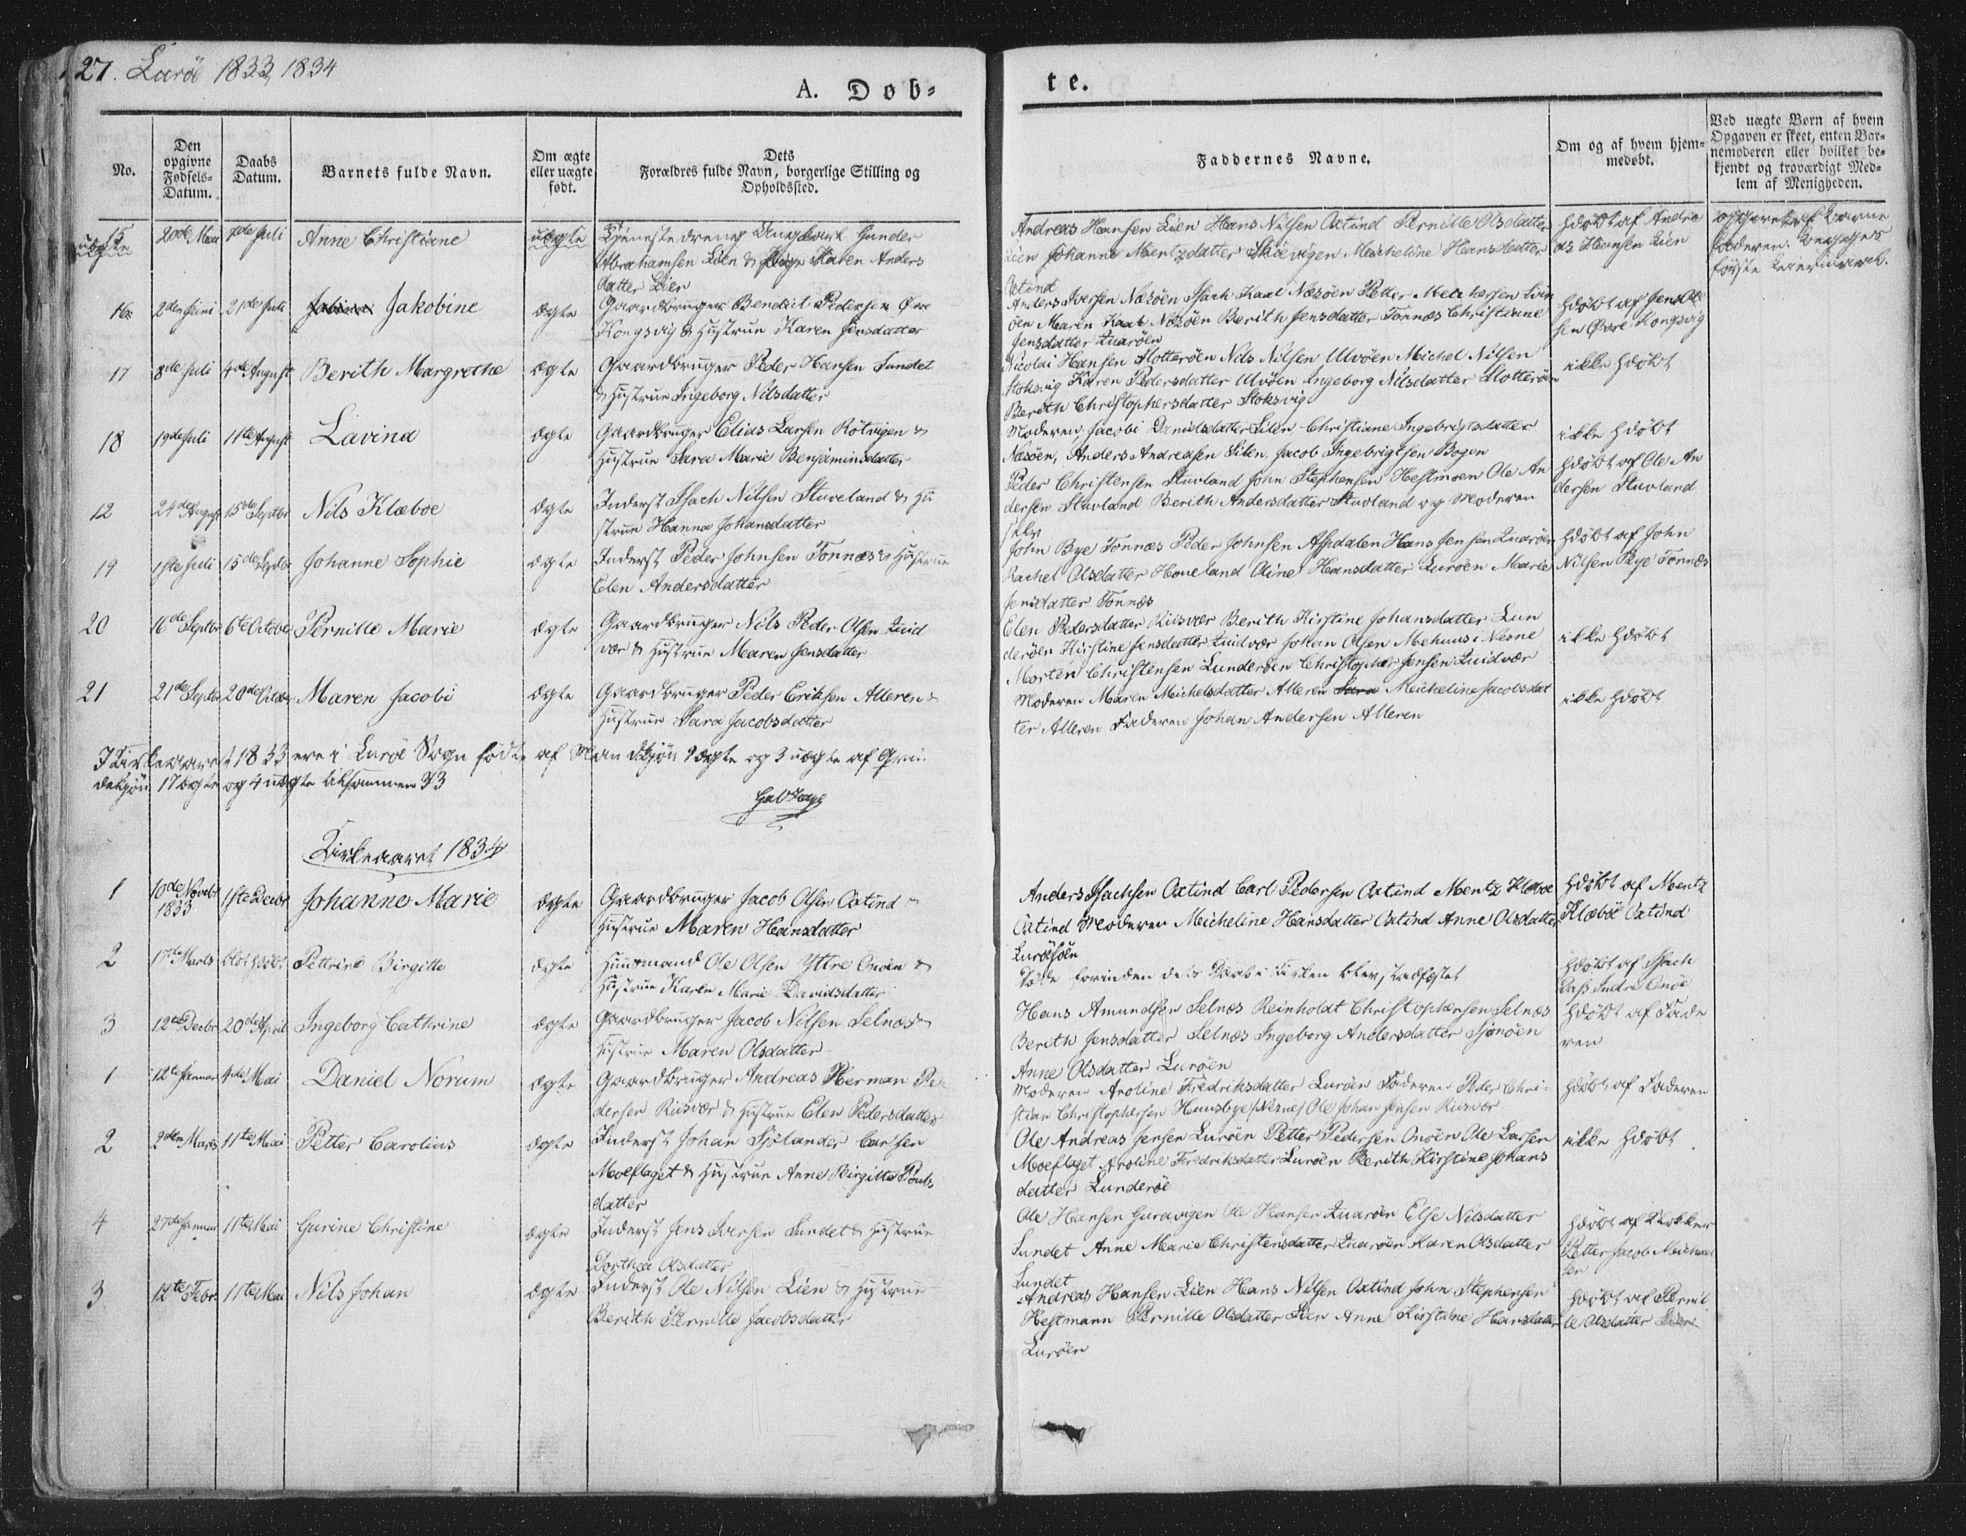 27. Lurøe 1833, 1834
A. Dob-
te.
No.
Den opgivne Fødsels-Datum.
Daabs Datum.
Barnets fulde Navn.
Om ægte eller uægte født.
Dets Forældres fulde Navn, borgerlige Stilling og Opholdssted.
Faddernes Navne.
Om og af hvem hjemmedøbt.
Ved uægte Børn af hvem Opgaven er skeet, enten Barnemoderen eller hvilket bekjendt og troværdigt Medlem af Menigheden.
15 uægte 20de Mai 7de Juli Anne Christiane uægte Tjenestedreng Ungkarl Gunder
Abrahamsen Lien & Pige Karen Anders
datter Lien
Andreas Hansen Lien Hans Nilsen Oxtind Pernille Olsdatter
Lien Johanne Mentzdatter Micheline Hansdatter
Oxtind
Hdøbt af Andre
as Hansen Lien
16 2den Juni 21de Juli Jakobine ægte Gaardbruger Bendict Pedersen Øvre
Kongsvig & Hustrue Karen Jensdatter
Anders Iversen Næsøen Isach Kaal Næsøen Petter
øen Maren Kaal Næsøen Berith Jensdatter Tonnæs Christiane
Jensdatter Luarøen
Hdøbt af Jens Ol
sen Øvre Kongsvig
17 8de Juli 4de August Berith Margrethe ægte Gaardbruger Peder Hansen Sundet
& Hustrue Ingeborg Nilsdatter
Nicolai Hansen Slotterøen Nils Nilsen Ulvøen Michel Nilsen
Stoksvig Karen Pedersdatter Ulvøen Ingeborg Nilsdatter Slotterøen
Berith Christophersdatter Stoksvig
ikke Hdøbt
18 19de Juli 11te August Lavina ægte Gaardbruger Elias Larsen Rølvigen &
Hustrue Sara Marie Benjaminsdatter
Moderen, Jacobi Danielsdatter Silen Christiane Ingebrigtsdatter
Næsøen, Anders Andreasen Silen, Jacob Ingebrigtsen Bogen
ikke Hdøbt
12 24de August 15de Septbr Nils Klæboe ægte Inderst Isach Nilsen Stuveland & Hu
strue Hanna Johansdatter
Peder Christensen Stuvland John Stephensen Hestmoen Ole An
dersen Stuvland Berith Andersdatter Stuvland og Moderen
selv
Hdøbt af Ole An
dersen Stuvland
19 1ste Juli 15de Septbr Johanne Sophie ægte Inderst Peder Johnsen Tonnæs & Hustrue
Elen Andersdatter
John Bye Tonnæs Peder Johnsen Aspdalen Hans Jensen Luarøen
Rachel Olsdatter Hoveland Oline Hansdatter Lurøen Marie
Jensdatter Tonnæs
Hdøbt af John
Nilsen Bye Tonnæs
20 16de Septbr 6te October Pernille Marie ægte Gaardbruger Nils Peder Olsen Quid
vær & Hustrue Maren Jensdatter
Elen Pedersdatter Riisvær Berith Kirstine Johansdatter Lun
derøen Kirstine Jensdatter Quidvær Johan Olsen Mehuus i Nesne
Morten Christensen Lunderøen Christopher Jensen Quidvær
ikke Hdøbt
21 21de Septbr 20de October Maren Jacobi ægte Gaardbruger Peder Eriksen Alleren &
Hustrue Sara Jacobsdatter
Moderen Maren Michelsdatter Alleren Sara Micheline Jacobsdat
ter Alleren Faderen Johan Andersen Alleren
ikke Hdøbt
I Kirkeaaret 1833 ere i Lurøe Sogn fødte af Mandkjøn 9 ægte og 3 uægte af Qvin
dekjøn 17 ægte og 4 uægte tilsammen 33
Kirkeaaret 1834
1 10de Novbr 1833 1ste Decbr Johanne Marie ægte Gaardbruger Jacob Olsen Oxtind &
Hustrue Maren Hansdatter
Anders Isachsen Oxtind Carl Pedersen Oxtind Mentz Klæboe
Oxtind Moderen Micheline Hansdatter Oxtind Anne Olsdatter
Lurøesøen
Hdøbt af Mentz
Klæboe Oxtind
2 17de Marts blot Hdøbt Pettrine Birgitte ægte Huusmand Ole Olsen Yttre Onøen &
Hustrue Karen Marie Davidsdatter
Døde forinden dets Daab i Kirken blev stadfæstet
Hdøbt af Isach
Indre Onøe
3 12te Decbr 20de April Ingeborg Cathrine ægte Gaardbruger Jacob Nilsen Selnæs &
Hustrue Maren Olsdatter
Hans Amundsen Selnæs Reinholdt Christophersen Selnæs
Berith Jensdatter Selnæs Ingeborg Andersdatter Sjonøen
Anne Olsdatter Lurøen
Hdøbt af Fade
ren
1 12te Januar 4de Mai Daniel Norum ægte Gaardbruger Andreas Herman Pe
dersen Riisvær & Hustrue Elen Pedersdatter
Moderen Aroline Fredriksdatter Lurøen Faderen Peder Chri
stian Christophersen Huusbye (Nesne) Ole Johan Jensen Riisvær
Hdøbt af Faderen
2 2den Marts 11te Mai Petter Carolius ægte Inderst Johan Sjølander Carlsen
Moeflaget & Hustrue Anne Birgitte Pouls
datter
Ole Andreas Jensen Lurøen Petter Pedersen Onøen Ole Larsen
Moeflaget Aroline Fredriksdatter Lurøen Berith Kirstine Johans
datter Lunderøe
ikke Hdøbt
4 27de Januar 11te Mai Gurine Christine ægte Inderst Jens Iversen Sundet & Hustrue
Dorthea Olsdatter
Ole Hansen Guravigen Ole Hansen Luarøen Else Nilsdatter
Sundet Anne Marie Christensdatter Luarøen Karen Olsdatter
Sundet
Hdøbt af Klokker
Petter Jacob Michael
sen
3 12te Febr 11te Mai Nils Johan ægte Inderst Ole Nilsen Lien & Hustrue
Berith Pernille Jacobsdatter
Andreas Hansen Lien Hans Nilsen Oxtind John Stephensen
Hestmann Pernille Olsdatter Lien Anne Kirstine Hansdatter
Lurøen
Hdøbt af Pernil
le Olsdatter Lien